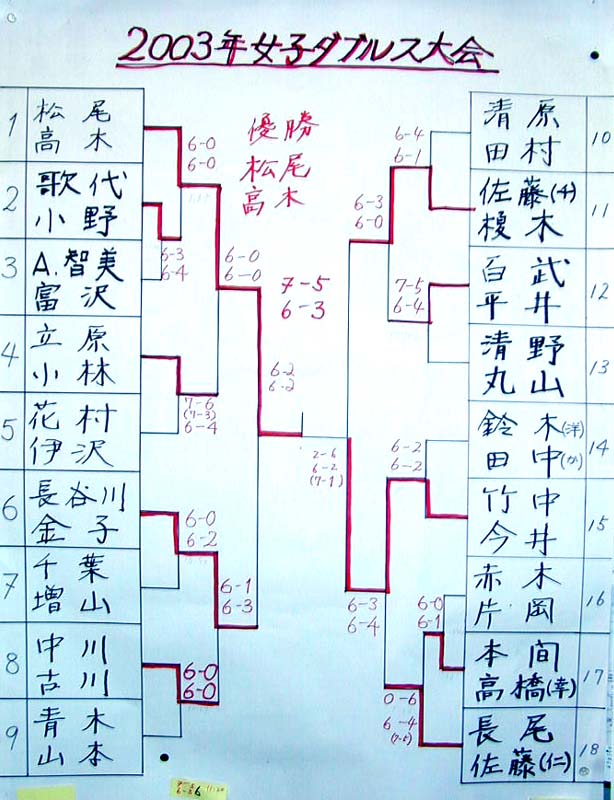 2003年女子ダブルス大会
優勝
松尾
高木
7-5
6-3
1
松尾
高木
2
歌代
小野
3
A.智美
富沢
4
立原
小林
5
花村
伊沢
6
長谷川
金子
7
千葉
増山
8
中川
古川
9
青木
山本
6-0
6-0
6-3
6-4
6-0
6-0
7-6
(7-3)
6-4
6-2
6-2
6-0
6-2
6-1
6-3
6-0
6-0
清原
田村
10
佐藤(千)
榎木
11
百武
平井
12
清野
丸山
13
鈴木(洋)
田中(か)
14
竹中
今井
15
赤木
片岡
16
本間
高橋(幸)
17
長尾
佐藤(仁)
18
6-4
6-1
6-3
6-0
7-5
6-4
6-2
6-2
2-6
6-2
(7-1)
6-3
6-4
6-0
6-1
0-6
6-4